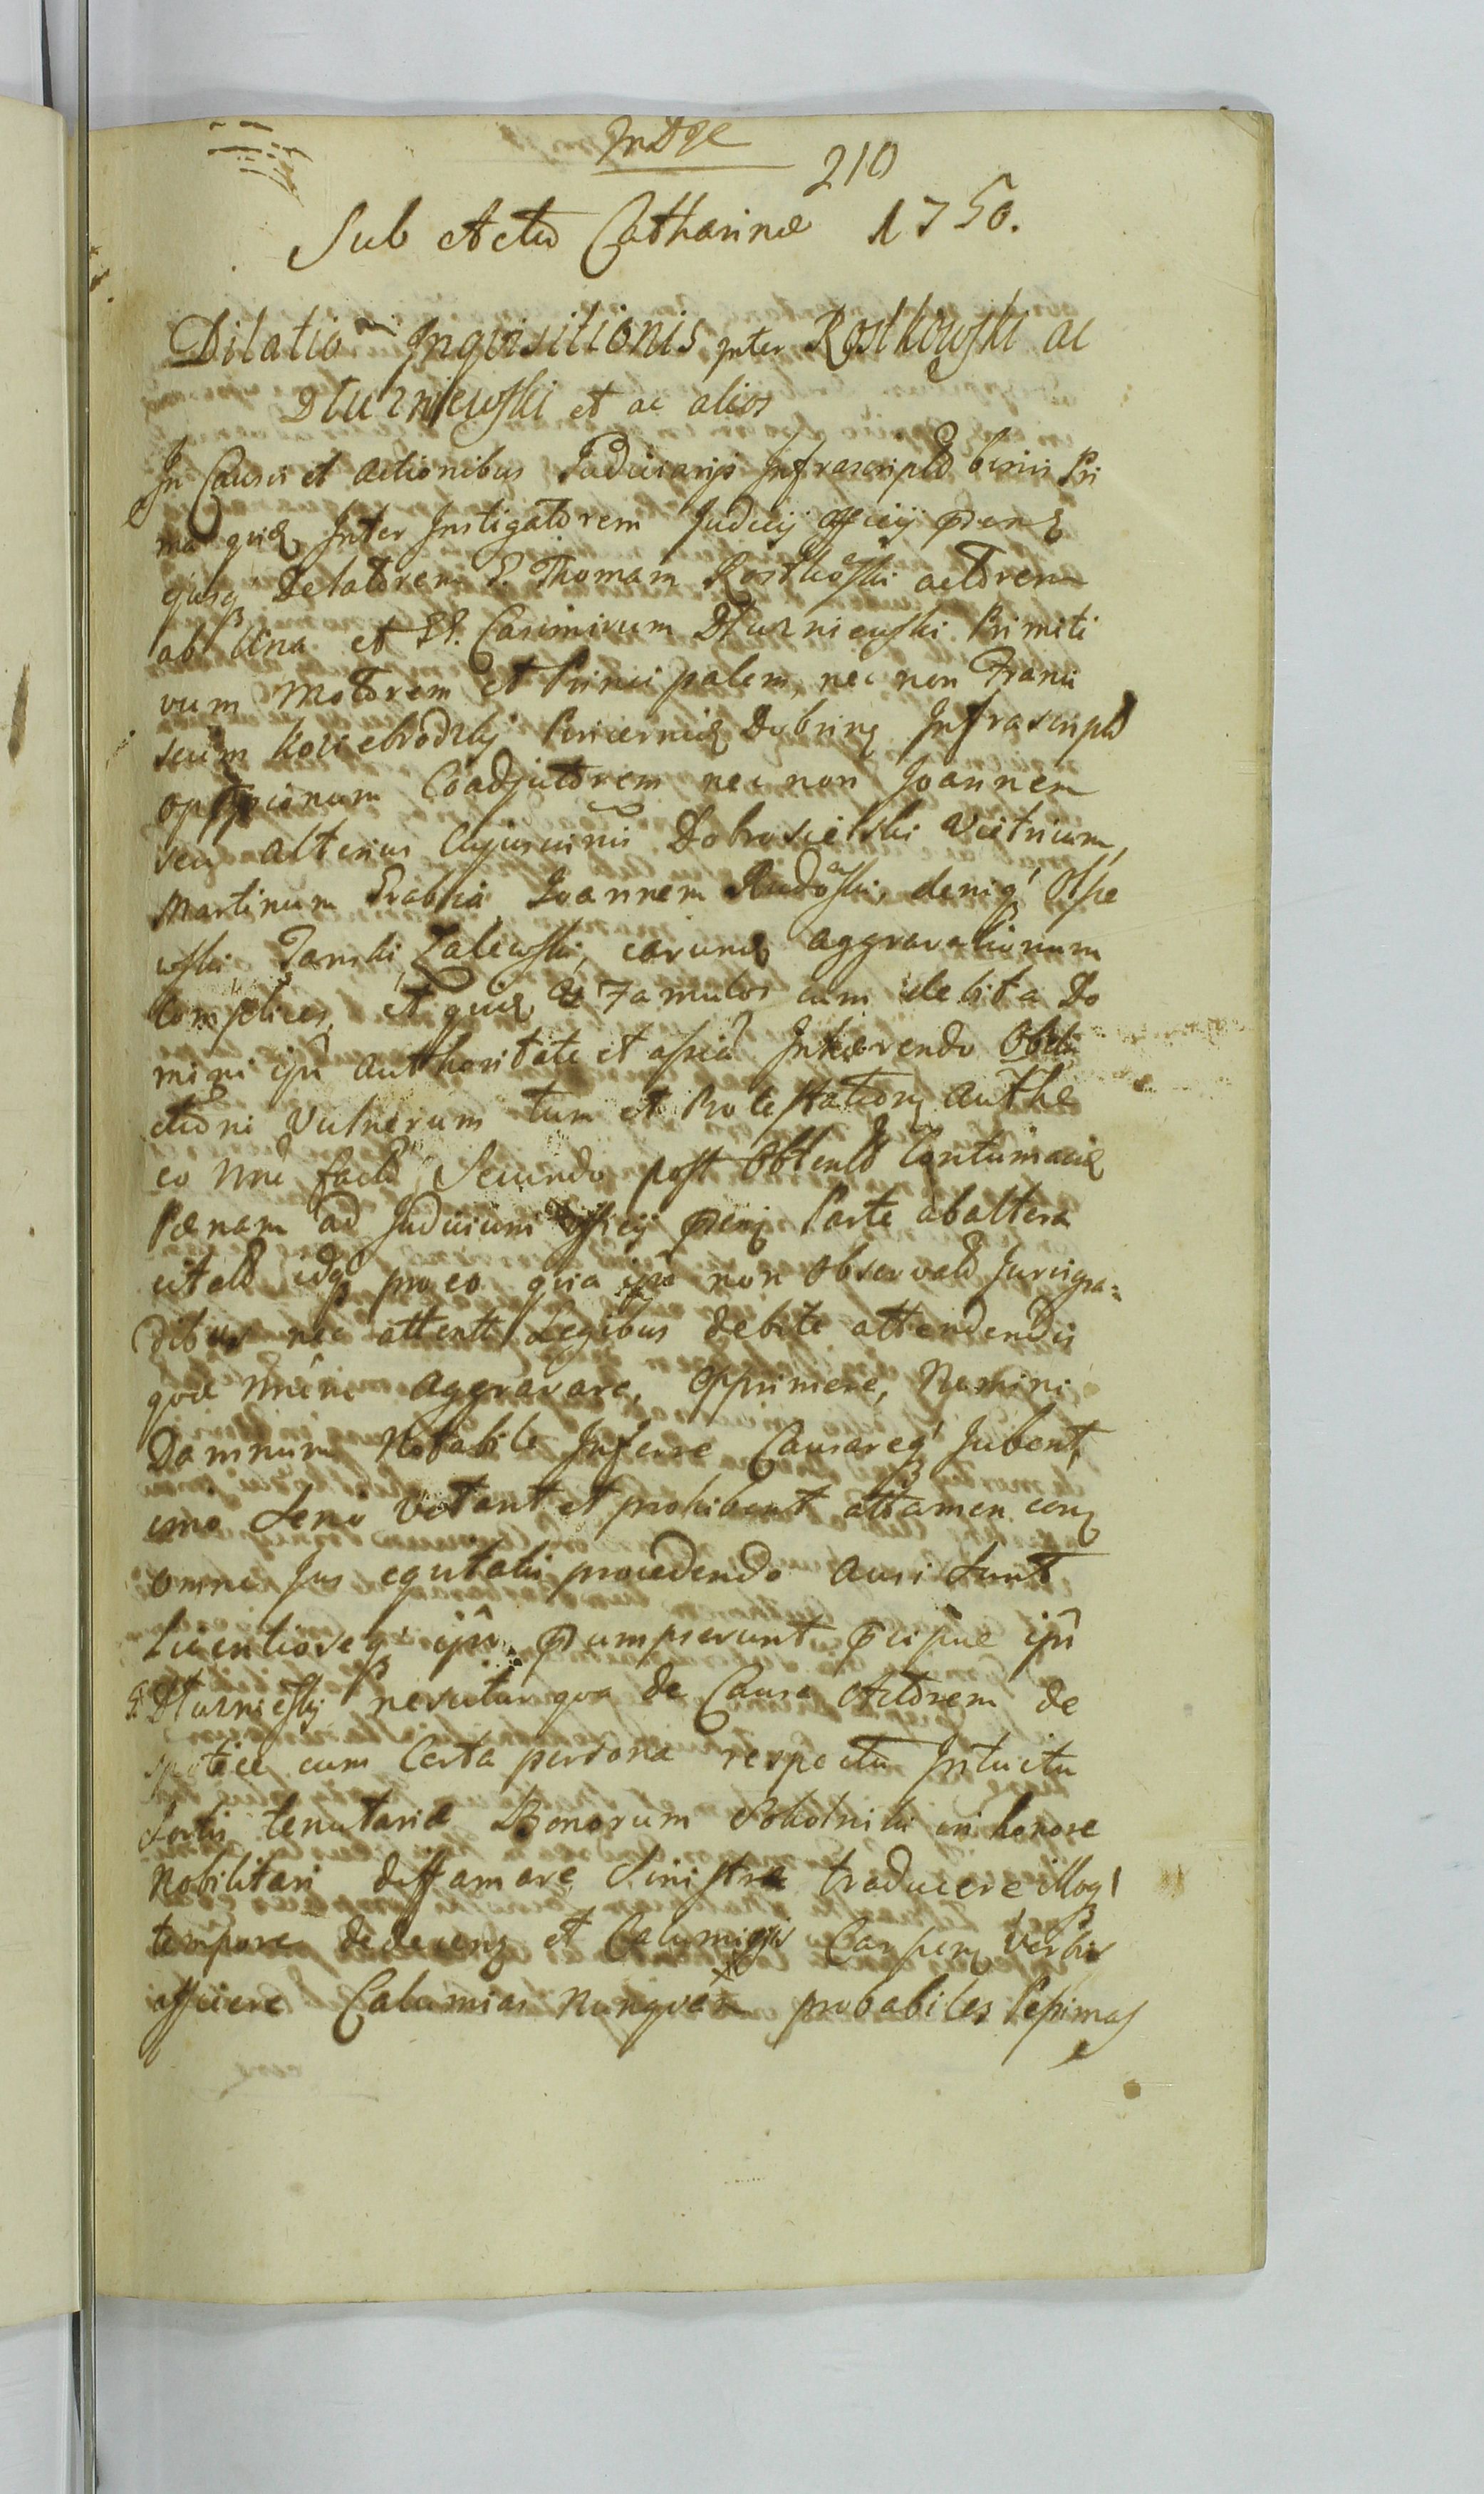 210
Sub Actu Catharinæ 1750.
Dilatio Inquisitionis Inter Rostkowski ac
Dłuzniewski et ac alios
In Causis et actionibus Judiciarijs Infrascriptis binis Pri
ma quid Inter Instigatorem Judicij Officij pnt
ejusq Delatorem G. Thomam Rostkoski actorem
ab Una et GG. Casimirum Dłuzniewski Primiti
vum Motorem et Principalem, nec non Franci
scum Koziebrodzki Pincernid Dobrin Infrascript
oppscionum Coadjutorem nec non Joannem
seu alterius Cujuscunis Dobrosielski Vitricum,
Martinum Joannem Rudoski, deniq Osie
wski Janski, Zalewski, earund aggravationum
Complices, et quid Famulos cum debita Do
mini ipu authoritate et assia Inhærendo Obdu
ctioni Vulnerum tum et Protestationi authe
eo nne facto, Secundo post Obtento Contumaciæ
Pœnam ad Judicium Officij pnt Parte ab altera
citato idq pro eo quia ipi non Observato Juris gra=
dibus nec attentis Legibus debite attendendis
quæ nemini aggravare, Opprimere, Nemini
Damnum Notabile Inferre Causareq Jubent,
imo Serio Vetant et prohibent attamen con
omne Jus equitalis procedendo Ausi Sunt
Licentioseq ipi psumpserunt pcipue ipu
G. Dłuznieski nescitur qva de Causa Actorem de
spotice cum Certa persona respectu Intuitu
Sortis tenutariæ Bonorum Sokolniki in honore
Nobilitari diffamare Sinistre traducere illoq
tempore dedecens et Calumijs Carpen Verbis
afficere Calumias Nunquam probabiles Pessimas